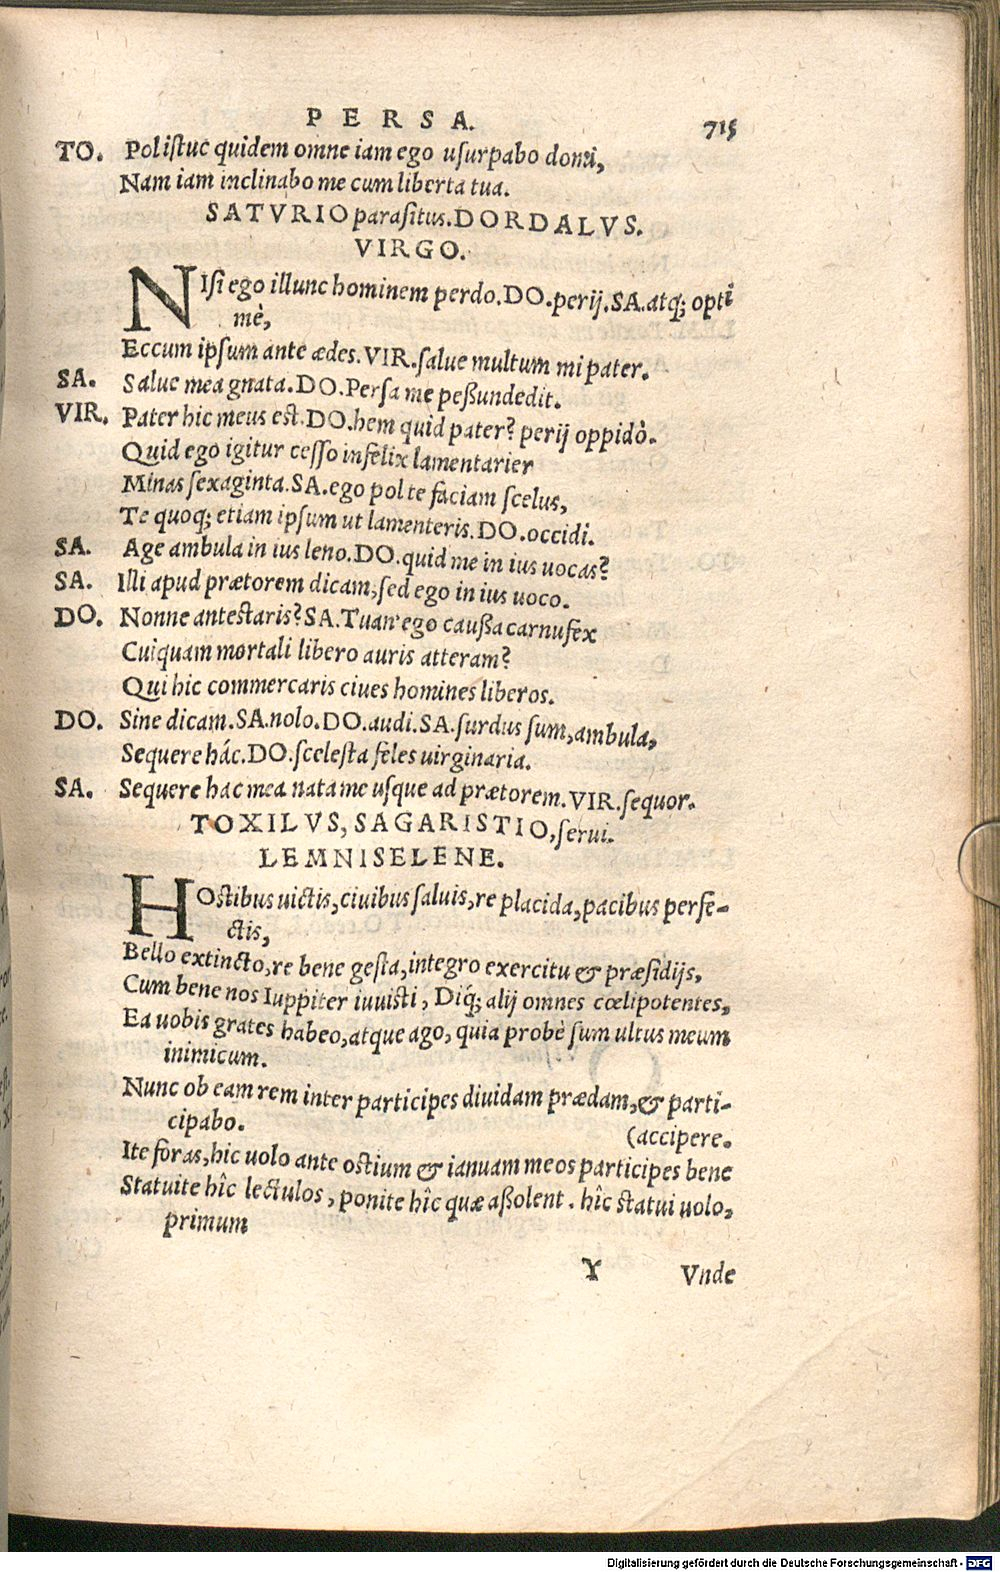 PERSA. 715
TO. Pol istuc quidem omne iam ego usurpabo domi,
Nam iam inclinabo me cum liberta tua.
SATVRIO parasitus. DORDALVS.
VIRGO.
NIsi ego illunc hominem perdo. DO. perij. SA. atq; opti
mè,
Eccum ipsum ante ædes. VIR. salue multum mi pater.
SA. Salue mea gnata. DO. Persa me peßundedit.
VIR. Pater hic meus est. DO. hem quid pater? perij oppidò.
Quid ego igitur cesso infelix lamentarier
Minas sexaginta. SA. ego pol te faciam scelus,
Te quoq; etiam ipsum ut lamenteris. DO. occidi.
SA. Age ambula in ius leno. DO. quid me in ius uocas?
SA. Illi apud prætorem dicam, sed ego in ius uoco.
DO. Nonne antestaris? SA. Tuan' ego caußa carnufex
Cuiquam mortali libero auris atteram?
Qui hic commercaris ciues homines liberos.
DO. Sine dicam. SA. nolo. DO. audi. SA. surdus sum, ambula,
Sequere hác. DO. scelesta feles uirginaria.
SA. Sequere hac mea nata me usque ad prætorem. VIR. sequor.
TOXILVS, SAGARISTIO, serui.
LEMNISELENE.
HOstibus uictis, ciuibus saluis, re placida, pacibus perfe-
ctis,
Bello extincto, re bene gesta, integro exercitu & præsidijs,
Cum bene nos Iuppiter iuuisti, Diq́; alij omnes cœlipotentes,
Ea uobis grates habeo, atque ago, quia probè sum ultus meum
inimicum.
Nunc ob eam rem inter participes diuidam prædam, & parti-
cipabo. (accipere.
Ite foras, hic uolo ante ostium & ianuam meos participes bene
Statuite hîc lectulos, ponite hîc quæ aßolent. hîc statui uolo,
primum
Y Vnde
Digitalisierung gefördert durch die Deutsche Forschungsgemeinschaft - DFG